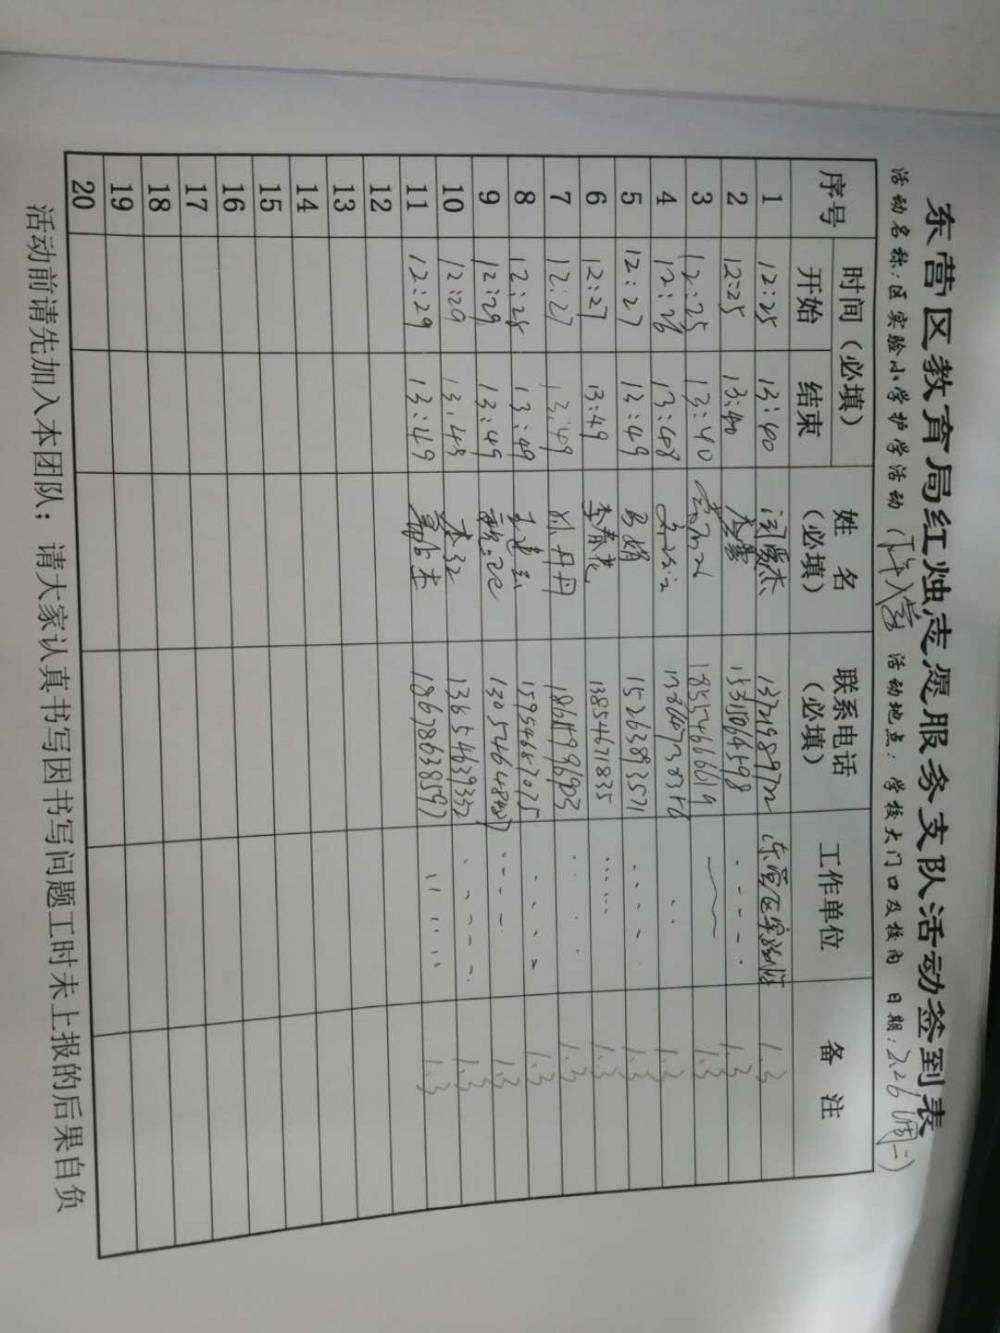 东营区教育局红烛志愿服务支队活动签到表
活动名称:区实验小学护学活动(下午入学) 活动地点:学校大门口及校内 日期:2.26(周二)
序号 时间(必填) 姓名(必填) 联系电话(必填) 工作单位 备注
开始 结束
1 12:25 13:40 东营区实验小学 1.3
2 12:25 13:40 1.3
3 12:25 13:40 18554666619 1.3
4 12:26 13:48 1.3
5 12:27 13:49 马娟 15263893571 1.3
6 12:27 13:49 李春花 13854671835 1.3
7 12:27 13:49 孙丹丹 1.3
8 12:28 13:49 15954687075 1.3
9 12:29 13:49 1.3
10 12:29 13:49 13654639332 1.3
11 12:29 13:49 18678638597 1.3
12
13
14
15
16
17
18
19
20
活动前请先加入本团队;请大家认真书写因书写问题工时未上报的后果自负